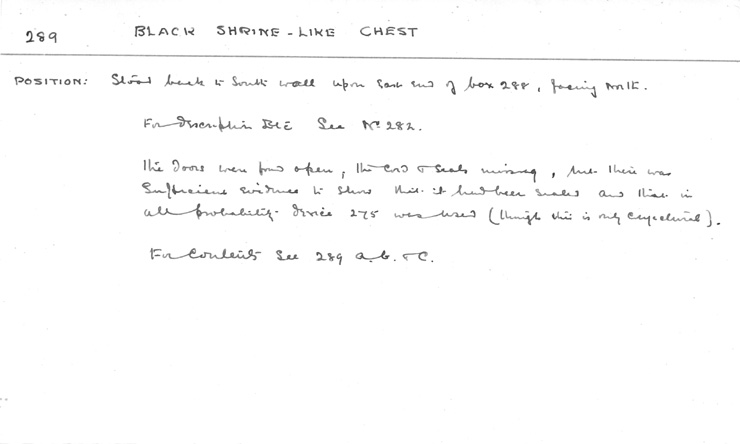 289 BLACK SHRINE-LIKE CHEST
POSITION: Stood back to South wall upon East end of box 288, facing North.
For description Etc See Nº 282.
The doors were found open, the cord & seals missing, but there was
sufficient evidence to show that it had been sealed and that in
all probability device 275 was used (though this is only conjectural).
For Contents See 289 a. b. & c.